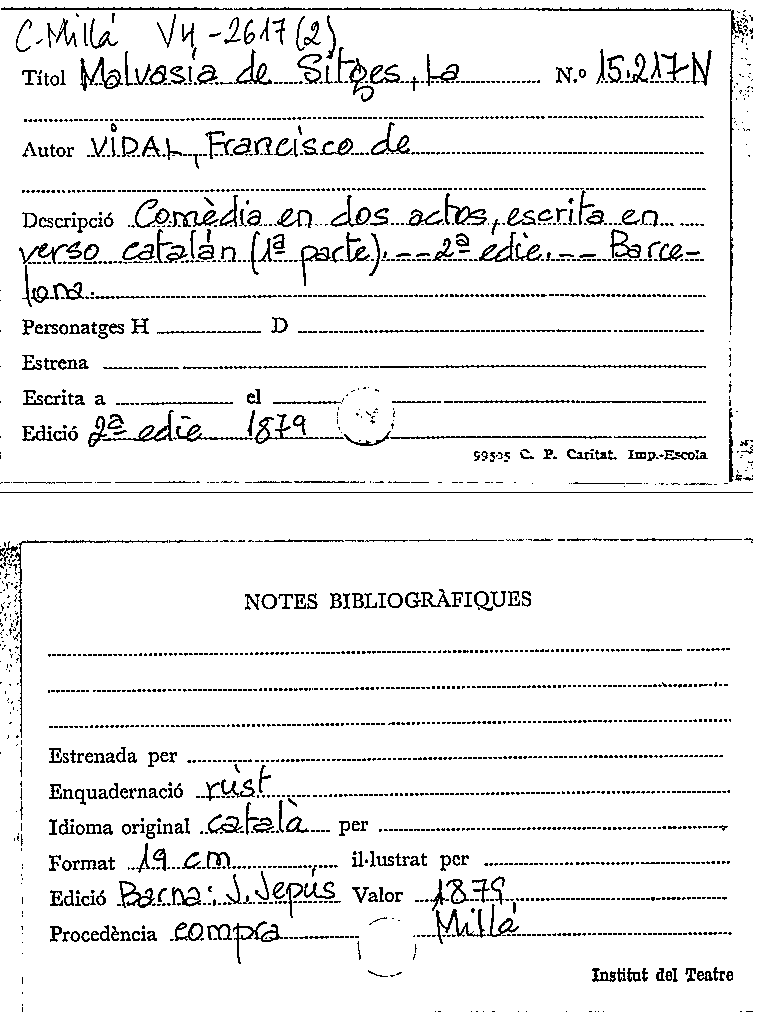 C. Millá V4-2617 (2)
Títol Malvasía de Sitges, La N.º 15.217-N
Autor VIDAL, Francisco de
Descripció Comèdia en dos actos, escrita en
verso catalán (1ª parte). -- 2ª edic. -- Barce-
lona.
Personatges H D
Estrena
Escrita a el
Edició 2ª edic 1879
99505 C. P. Caritat. Imp.-Escola
NOTES BIBLIOGRÀFIQUES
Estrenada per
Enquadernació rúst
Idioma original català per
Format 19 cm il·lustrat per
Edició Barna: J. Jepús Valor 1879
Procedència compra Millá
Institut del Teatre